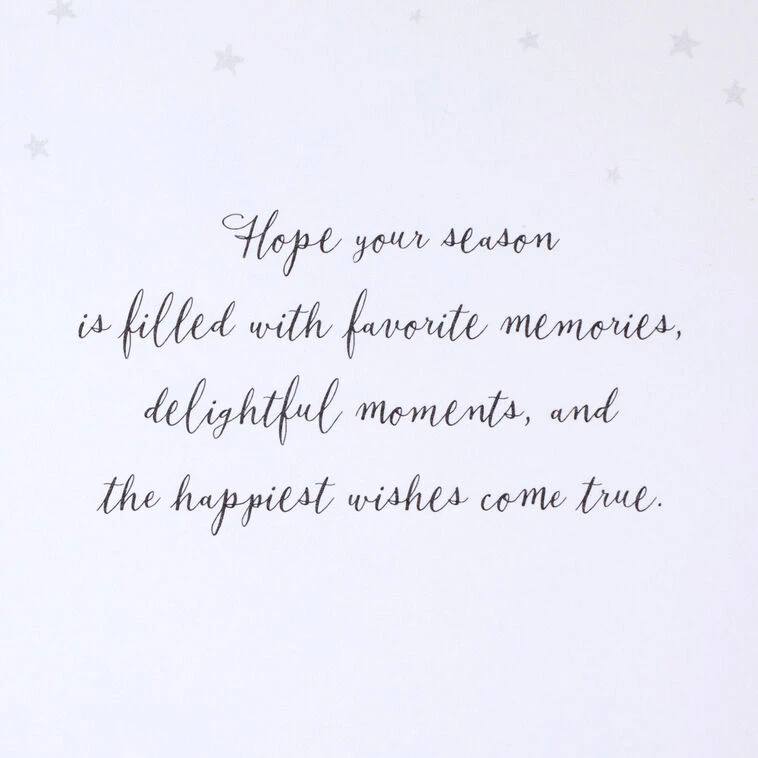 Hope your season
is filled with favorite memories,
delightful moments, and
the happiest wishes come true.